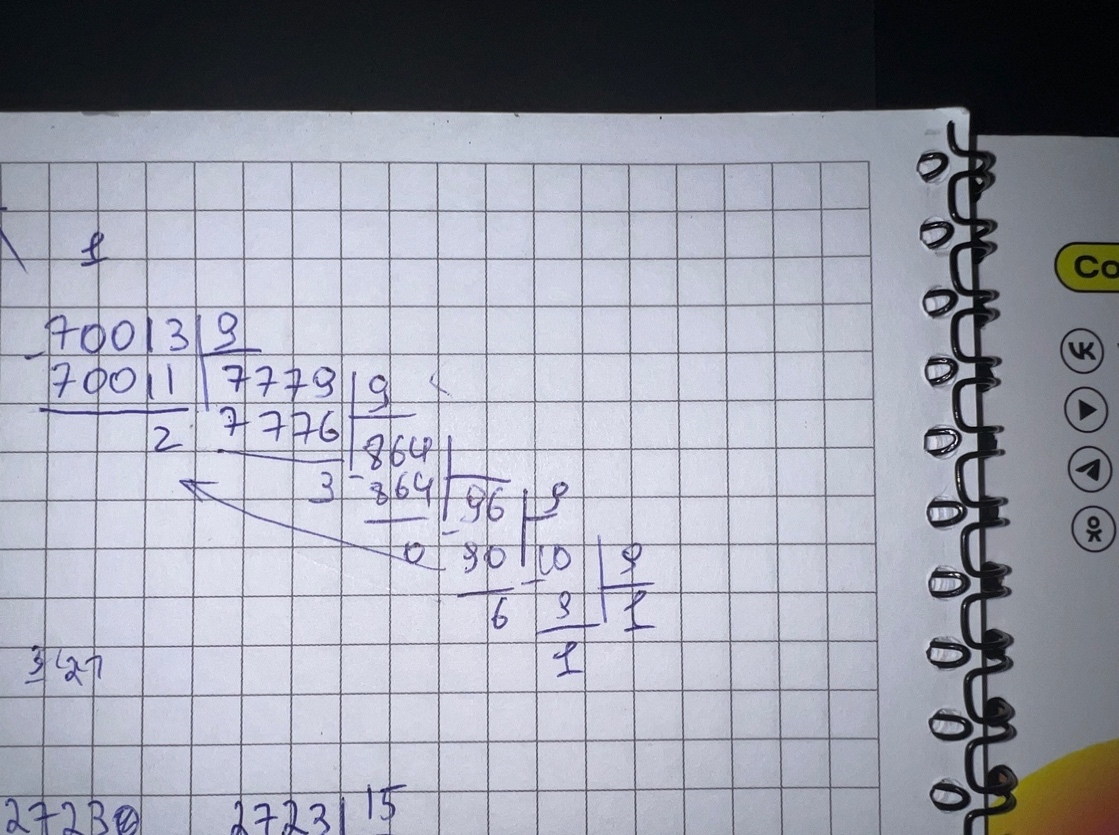 1
70013 9
70011 7779 9
2 7776 864
3 864 96 9
0 90 10 9
6 9 1
1
3 27
27230 2723 15
Co